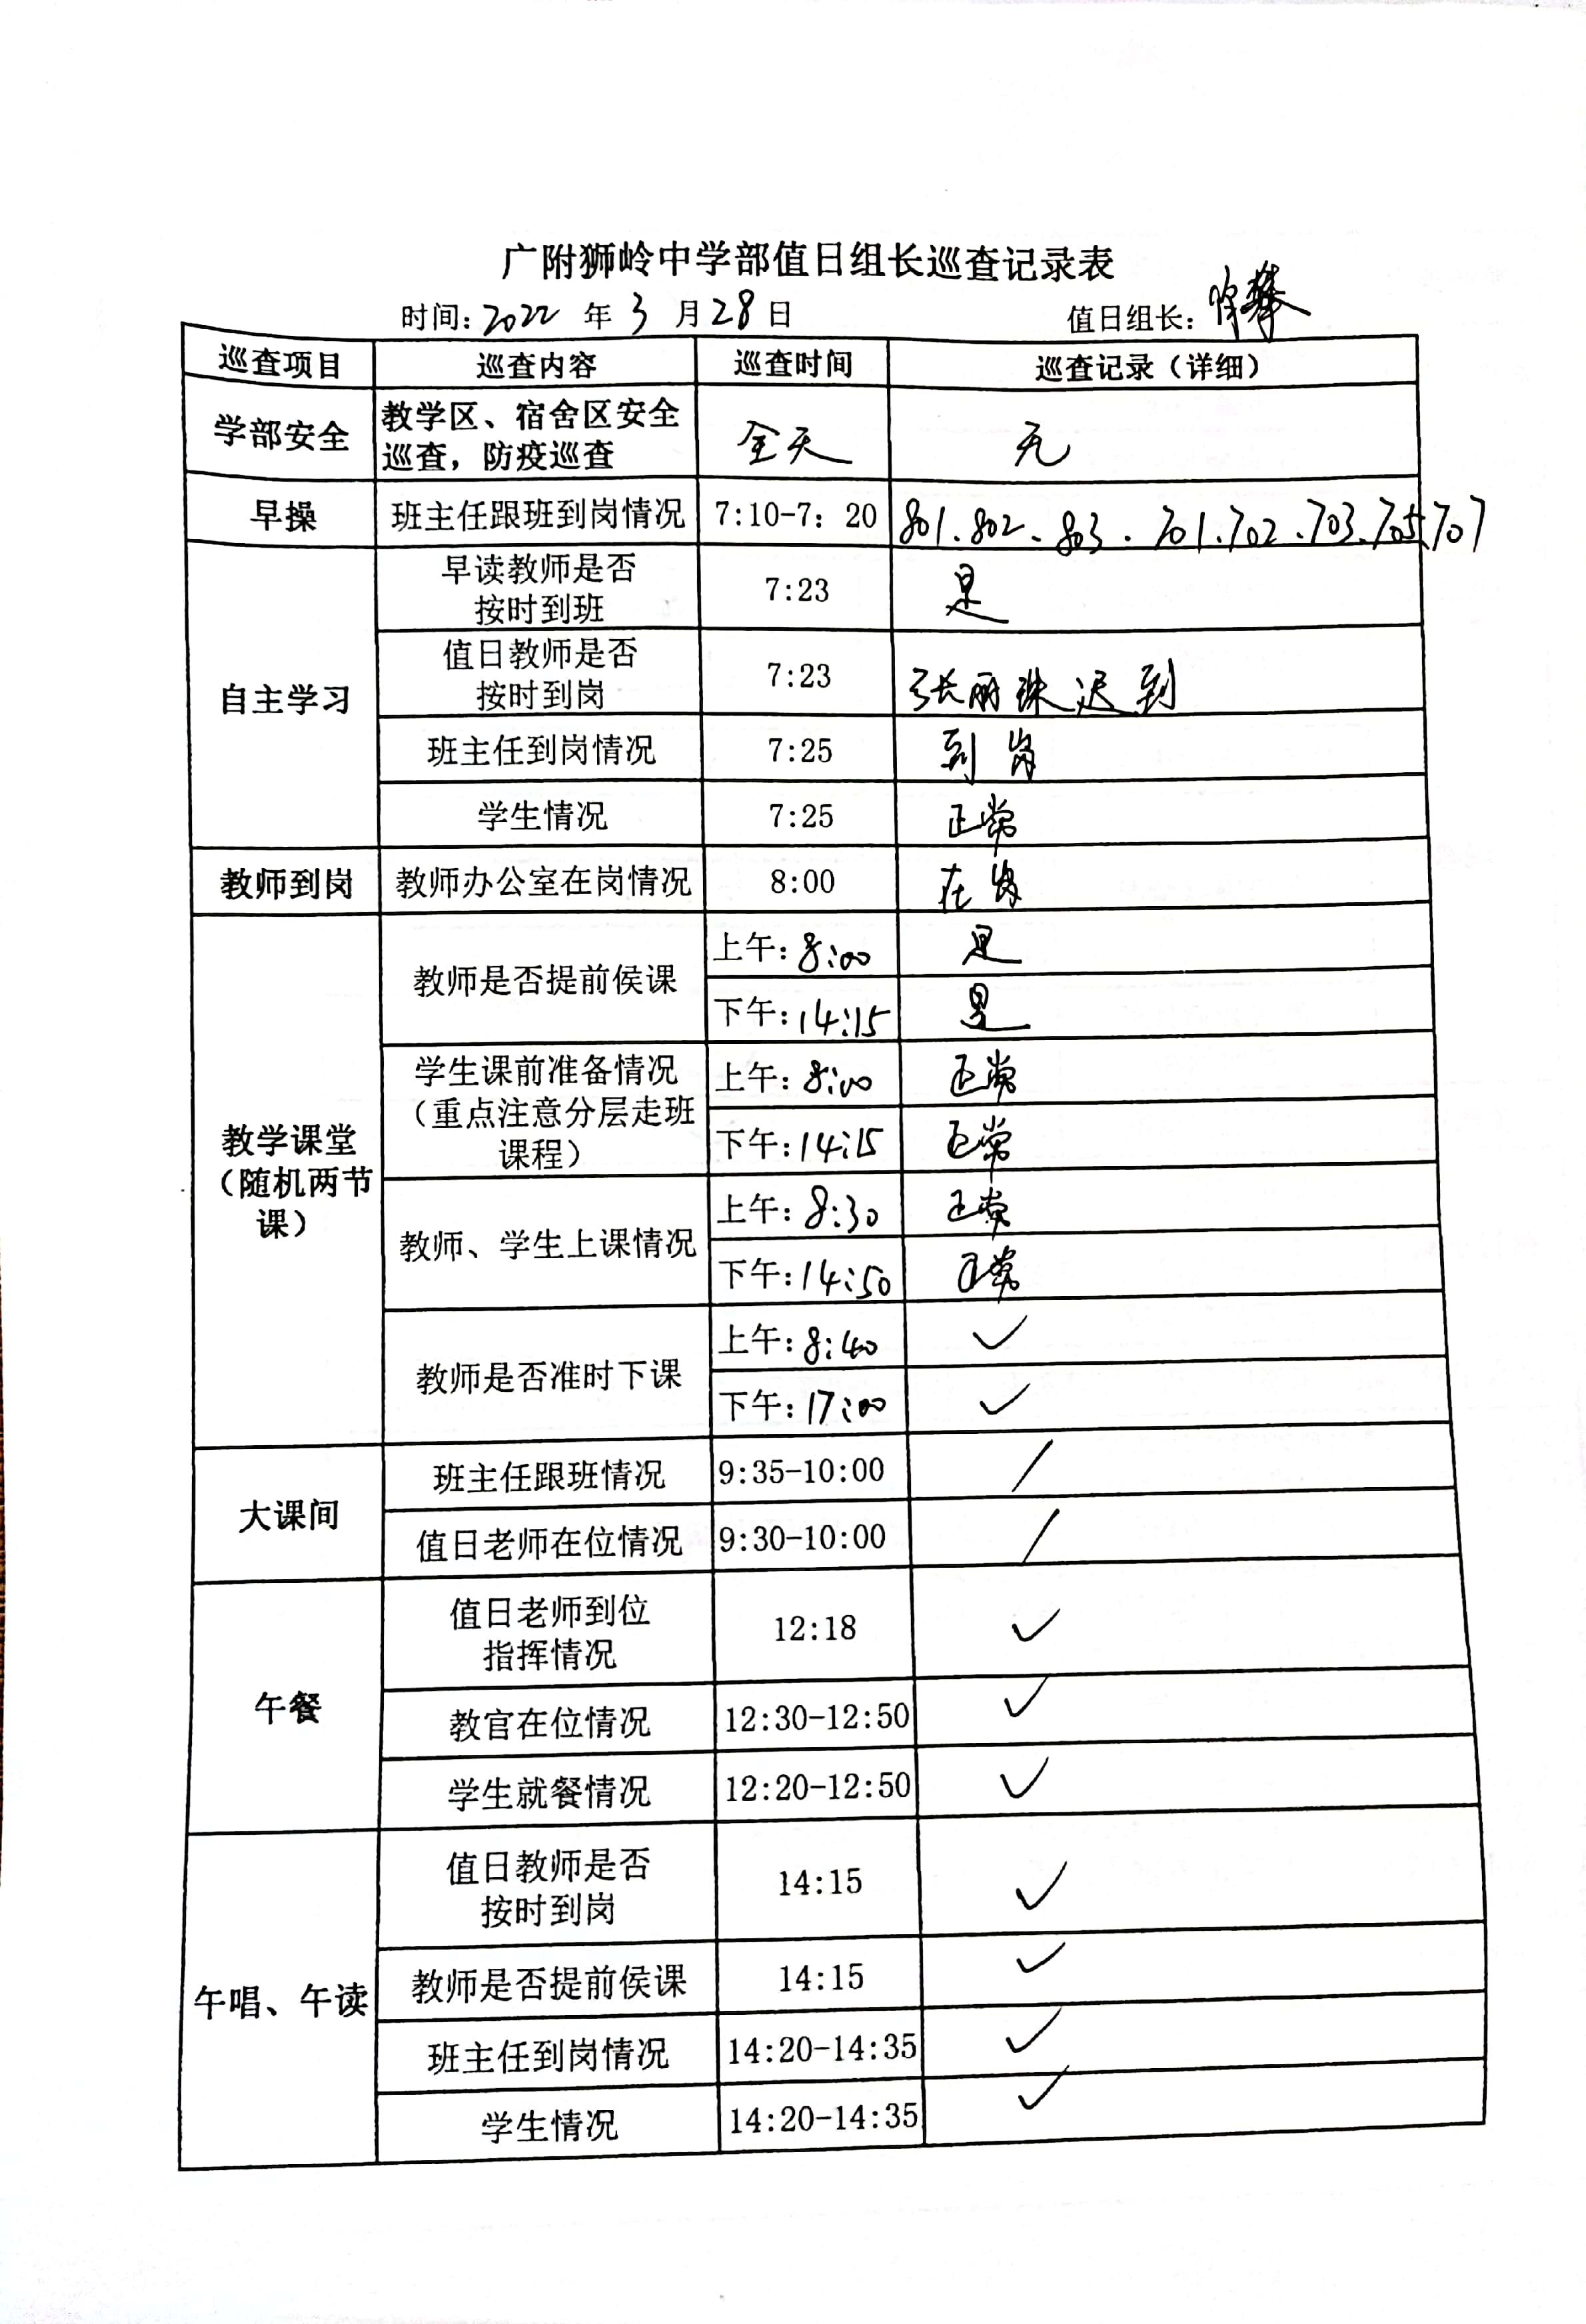 广附狮岭中学部值日组长巡查记录表
时间: 2022 年 3 月 28 日 值日组长:
巡查项目 巡查内容 巡查时间 巡查记录（详细）
学部安全 教学区、宿舍区安全 全天 无
巡查，防疫巡查
早操 班主任跟班到岗情况 7:10-7：20 801.802.803.701.702.703.705.707
自主学习
早读教师是否 7:23 是
按时到班
值日教师是否 7:23 张丽珠迟到
按时到岗
班主任到岗情况 7:25 到岗
学生情况 7:25 正常
教师到岗 教师办公室在岗情况 8:00 在岗
教学课堂
（随机两节
课）
教师是否提前侯课 上午: 8:00 是
下午: 14:15 是
学生课前准备情况 上午: 8:00 正常
（重点注意分层走班
课程） 下午: 14:15 正常
教师、学生上课情况 上午: 8:30 正常
下午: 14:50 正常
教师是否准时下课 上午: 8:40 ✓
下午: 17:00 ✓
大课间
班主任跟班情况 9:35-10:00 /
值日老师在位情况 9:30-10:00 /
午餐
值日老师到位 12:18 ✓
指挥情况
教官在位情况 12:30-12:50 ✓
学生就餐情况 12:20-12:50 ✓
午唱、午读
值日教师是否 14:15 ✓
按时到岗
教师是否提前侯课 14:15 ✓
班主任到岗情况 14:20-14:35 ✓
学生情况 14:20-14:35 ✓